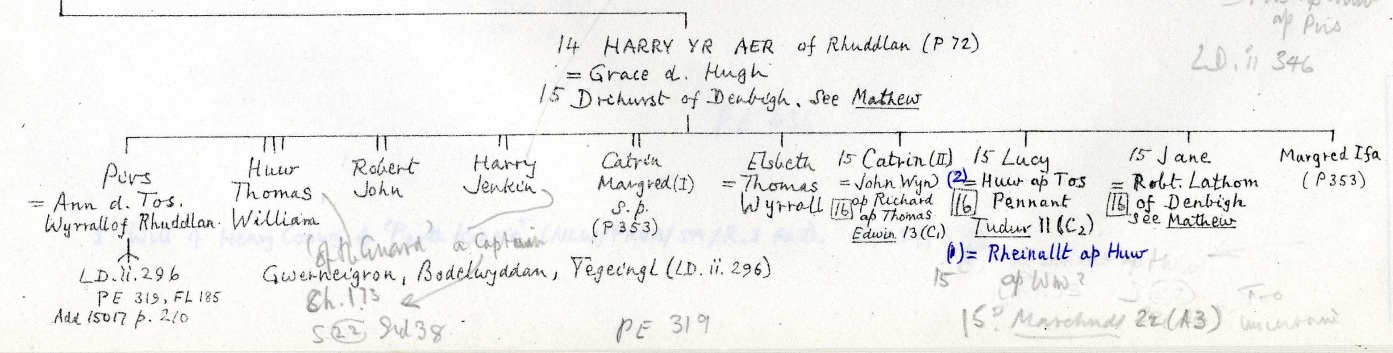 ap Pirs
LD. ii 346
14 HARRY YR AER of Rhuddlan (P 72)
= Grace d. Hugh
15 Drihurst of Denbigh. See Mathew
Pirs
= Ann d. Tos.
Wyrrall of Rhuddlan.
LD. ii. 296
PE 319, FL 185
Add 15017 p. 210
Huw
Thomas
William
Robert
John
Harry
Jenkin
Catrin
Margred (I)
s.p.
(P353)
Elsbeth
= Thomas
Wyrrall
15 Catrin (II)
= John Wyn
16 ap Richard
ap Thomas
Edwin 13 (C1)
15 Lucy
(2) = Huw ap Tos
16 Pennant
Tudur II (C2)
(1) = Rheinallt ap Huw
15 ap Wm?
15? Marchudd 22 (A3)
15 Jane
= Robt. Lathom
16 of Denbigh
see Mathew
Margred Ifa
(P353)
a Captain
Gwerneigron, Bodelwyddan, Tegeingl (LD. ii. 296)
Ch. 173
S 22
PE 319
Too
uncertain